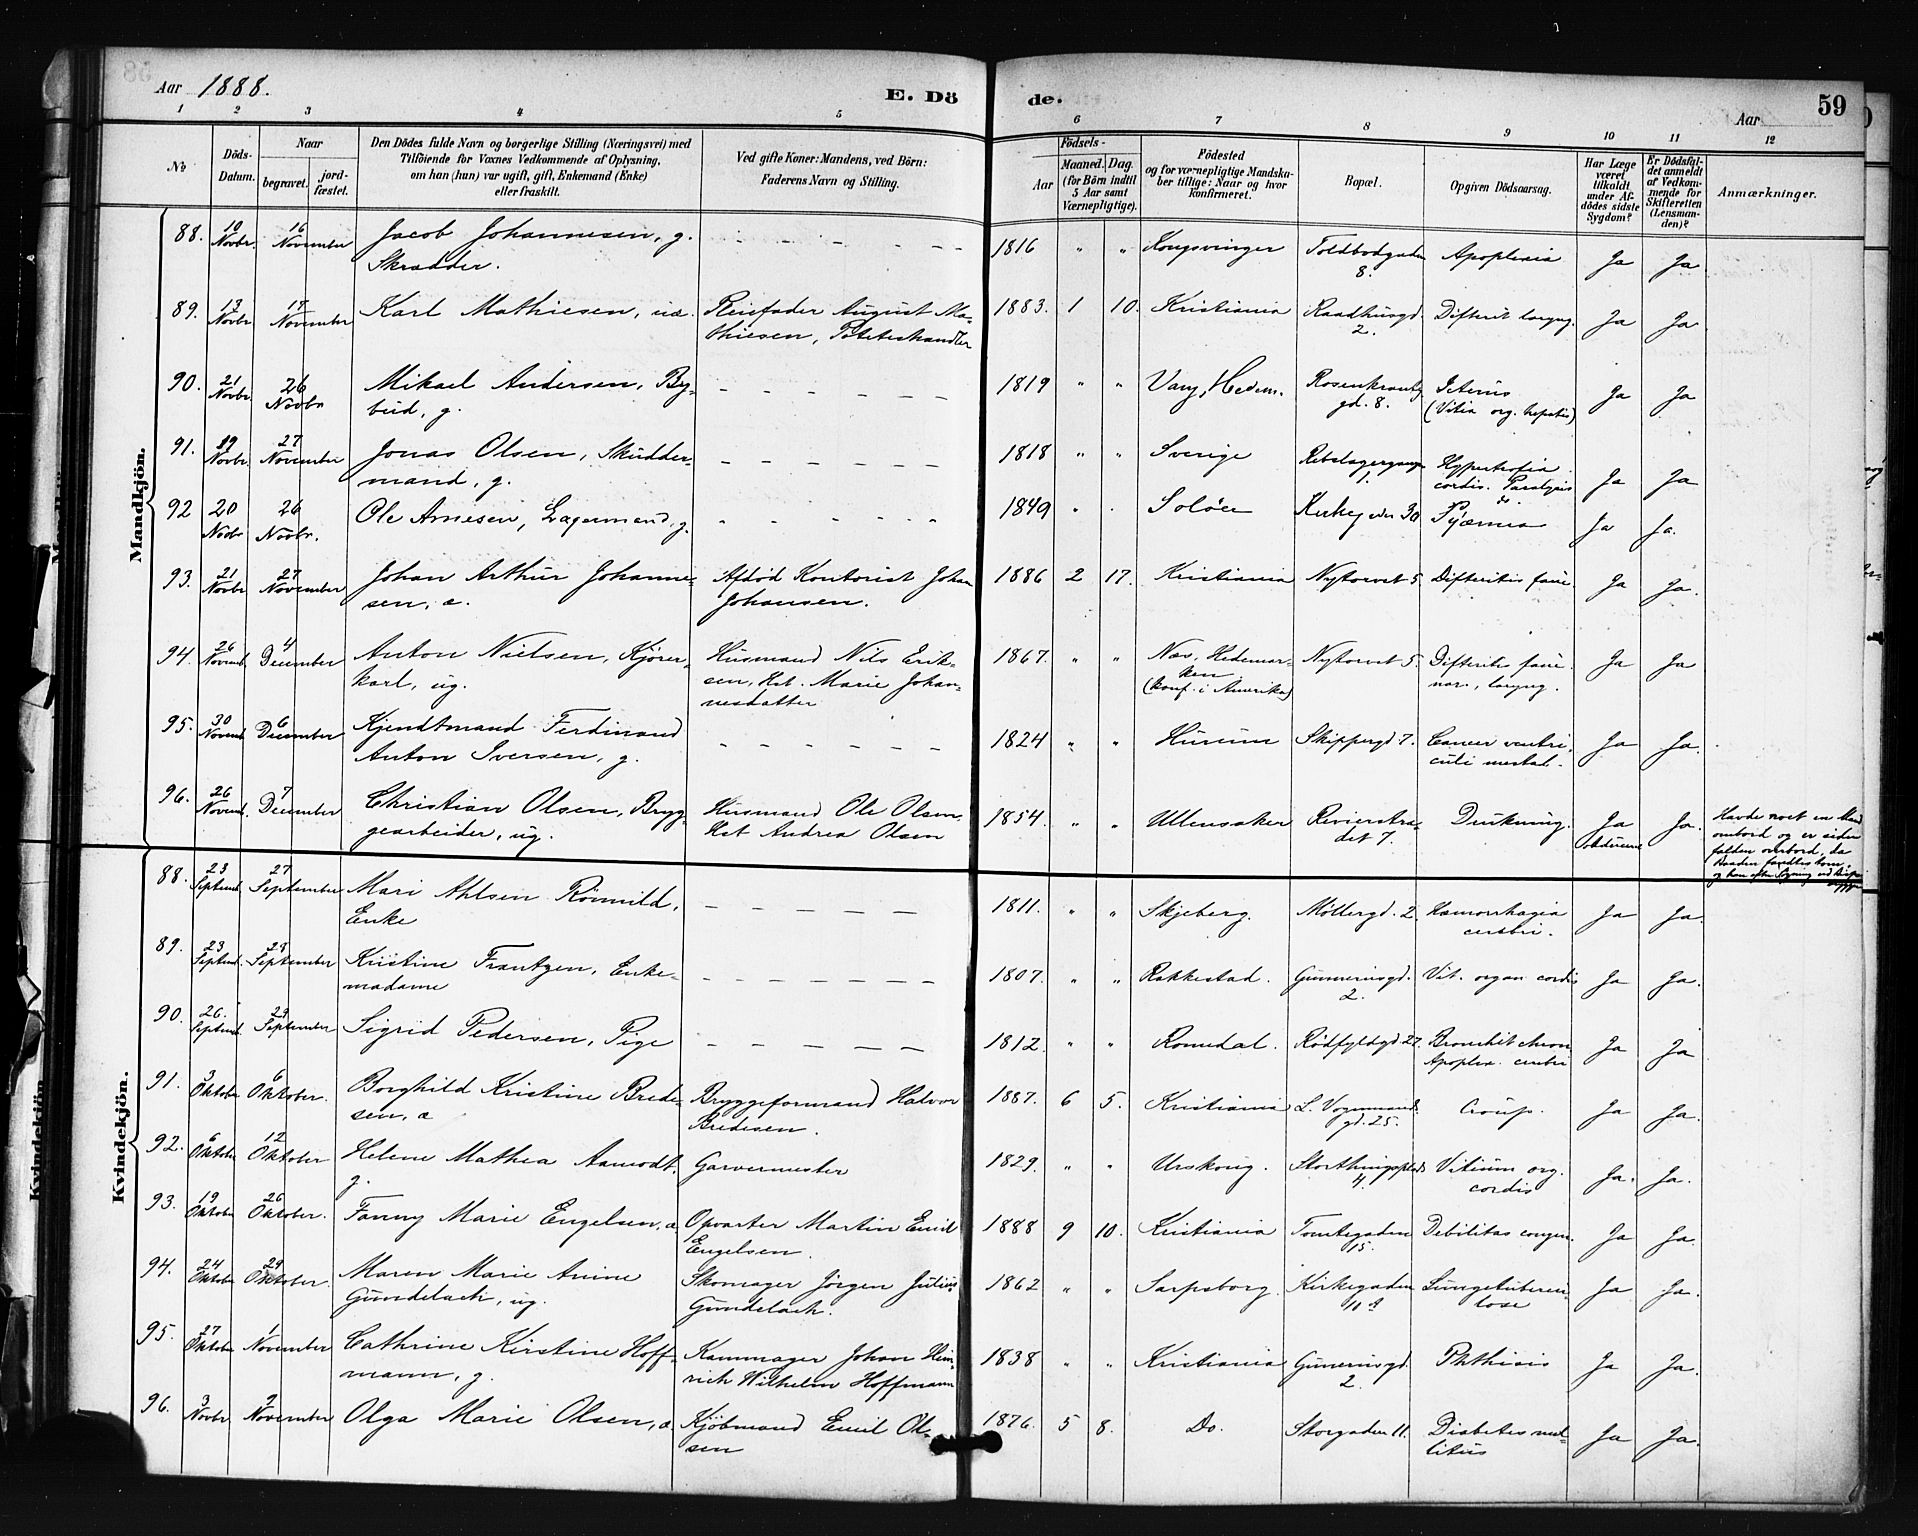 Aar 1888.
E. Dö
de.
Aar
59
1 2 3 4 5 6 7 8 9 10 11 12
No
Döds-Datum.
Naar
begravet.
jordfæstet.
Den Dödes fulde Navn og borgerlige Stilling (Næringsvei) med
Tilföiende for Voxnes Vedkommende af Oplysning,
om han (hun) var ugift, gift, Enkemand (Enke)
eller fraskilt.
Ved gifte Koner: Mandens, ved Börn:
Faderens Navn og Stilling.
Födsels-
Aar
Maaned. Dag.
(for Börn indtil
5 Aar samt
Værnepligtige).
Födested
og for værnepligtige Mandska-
ber tillige: Naar og hvor
konfirmeret.
Bopæl.
Opgiven Dödsaarsag.
Har Læge
været
tilkaldt
under Af-
dödes sidste
Sygdom?
Er Dödsfal-
det anmeldt
af Vedkom-
mende for
Skifteretten
(Lensman-
den)?
Anmærkninger.
Mandkjön.
88. 10 Novbr. 16 November Jacob Johannesen, g. 1816 " " Kongsvinger Toldbodgaden Apoplexia Ja Ja
Skrædder. 8.
89. 13 Novbr 17 November Karl Mathiesen, uæ. Pleiefader August Ma- 1883. 1 10. Kristiania Raadhusgd. Difterit laryng. Ja Ja
thiesen, Poteteshandler 2.
90. 21 Novbr. 26 Novbr Mikael Andersen, By- 1819 " " Vang, Hedem. Rosenkrantz Icterus Ja Ja
bud, g. gd. 8. (Vitia org. hepatis)
91. 19 Novbr. 27 November Jonas Olsen, Skudder- 1818 " " Sverige Rebslagergangen Hypertrofia Ja Ja
mand, g. 1. cordis. Paralysis
do.
92 20 Novbr 26 Novbr. Ole Arnesen, Lagermand, g. 1849 " " Solöer Kirkegaden 30 Pyæmia Ja Ja.
93. 21 Novbr 27 November Johan Arthur Johanne- Afdöd Kontorist Johan 1886 2 17. Kristiania Nytorvet 5. Difteritis fauc. Ja Ja.
sen, æ. Johansen.
94. 26 Novemb. 4 December Anton Nielsen, Kjörer- Husmand Nils Erik- 1867. " " Næs, Hedemar- Nytorvet 5. Difteritis fauc. Ja Ja
karl, ug. sen, Kst. Marie Johan- ken nar., laryng.
nesdatter (konf. i Amerika)
95. 30 Novemb. 6 December Kjendtmand Ferdinand 1824 " " Husum Skippergd 7. Cancer ventri- Ja Ja.
Anton Iversen, g. culi
96. 26 Novemb. 7 December Christian Olsen, Bryg- Husmand Ole Olsen, 1854. " " Ullensaker Revierstræ- Drukning. Ja Ja. Havde roet en Mand
gearbeider, ug. Kst Andrea Olsen det 7. ombord og er siden
falden overbord, da
Baaden fandtes tom,
Kvindekjön.
88. 23 Septemb. 27 September Mari Ahlsen Römild, 1811. " " Skjeberg. Möllergd. 2. Hæmorrhagia Ja Ja.
Enke cerebri.
89. 23 Septemb. 29 September Kristine Frantzen, Enke- 1807. " " Rakkestad. Gunnerusgd. Vit. organ cordis Ja Ja.
madame 2.
90. 26. Septemb. 29 September Sigrid Pedersen, Pige 1812. " " Romedal. Rödfyldgd. 27. Bronchit chron Ja Ja
Apoplex. cerebri
91. 3 Oktober 6 Oktober. Borghild Kristine Brede- Bryggeformand Halvor 1887. 6 5. Kristiania L. Vognmands Croup. Ja Ja.
sen, æ Bredesen. gd. 25.
92. 6 Oktober 12 Oktober Helene Mathea Aamodt, Garvermester 1829. " " Urskoug. Storthingsplads Vitium org. Ja. Ja.
g. 4. cordis
93. 19 Oktober 26 Oktober. Fanny Marie Engelsen, æ. Opvarter Martin Emil 1888 9 10. Kristiania Tomtegaden Debilitas congen. Ja Ja.
Engelsen. 15.
94. 24 Oktober 29 Oktober Maren Marie Anine Skomager Jörgen Julius 1862 " " Sarpsborg. Kirkegaden Lungetuberku- Ja Ja.
Gundelach, ug. Gundelach. lose
95. 27 Oktober 1 November Cathrine Kirstine Hoff- Kammager Johan Hein- 1838 " " Kristiania Gunerusgd. Phthisis Ja Ja.
mann, g. rich Wilhelm Hoffmann 2.
96. 3 Novbr 9 November Olga Marie Olsen, æ. Kjöbmand Emil Ol- 1876. 5 8. Do. Storgaden 11. Diabetes mel- Ja Ja.
sen litus